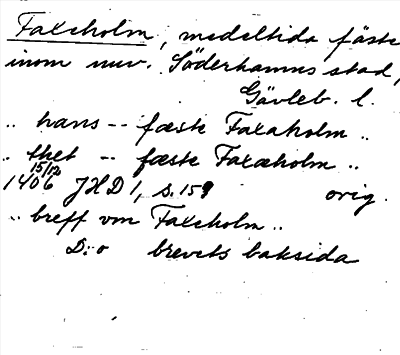 Faxeholm, medeltida fäste
inom nuv. Söderhamns stad,
Gävleb. l.
.. hans -- fæste Faxaholm ..
.. thet -- fæste Faxæholm ..
15/12
1406 JHD 1, s. 159 orig.
.. breff vm Faxeholm ..
D:o brevets baksida